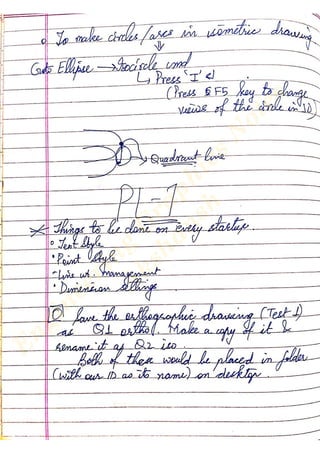 o To make circles/arcs in isometric drawing
Goto Ellipse → Isocircle cmd
↳ Press 'I' ↲
(Press F5 key to change
views of the circle in ID)
→ Quadrant line
PL-1
* Things to be done on every startup.
o Text Style
• Point Style
- Line wt. management
• Dimension settings
Save the orthographic drawing (Test 1)
as Q1 ortho. Make a copy of it &
rename it as Q2 iso.
Both of these would be placed in folder
(with our ID as its name) on desktop.